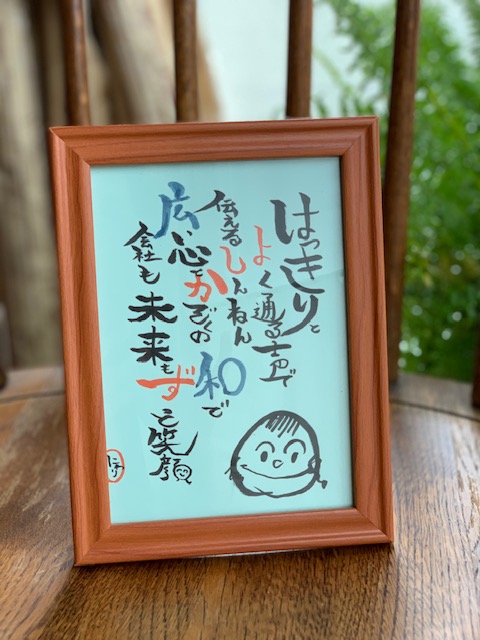 はっきりと
よく通る声で
伝えるしんねん
広い心でかぞくの和で
会社も未来もずっと笑顔
にかり